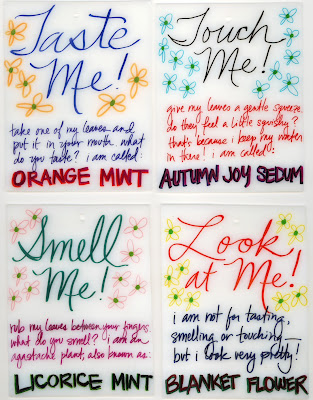 Taste
Me!
take one of my leaves and
put it in your mouth. what
do you taste? i am called:
ORANGE MINT
Touch
Me!
give my leaves a gentle squeeze.
do they feel a little squishy?
that's because i keep my water
in there! i am called:
AUTUMN JOY SEDUM
Smell
Me!
rub my leaves between your fingers.
what do you smell? i am an
agastache plant, also known as:
LICORICE MINT
Look
at Me!
i am not for tasting,
smelling or touching—
but i look very pretty!
BLANKET FLOWER